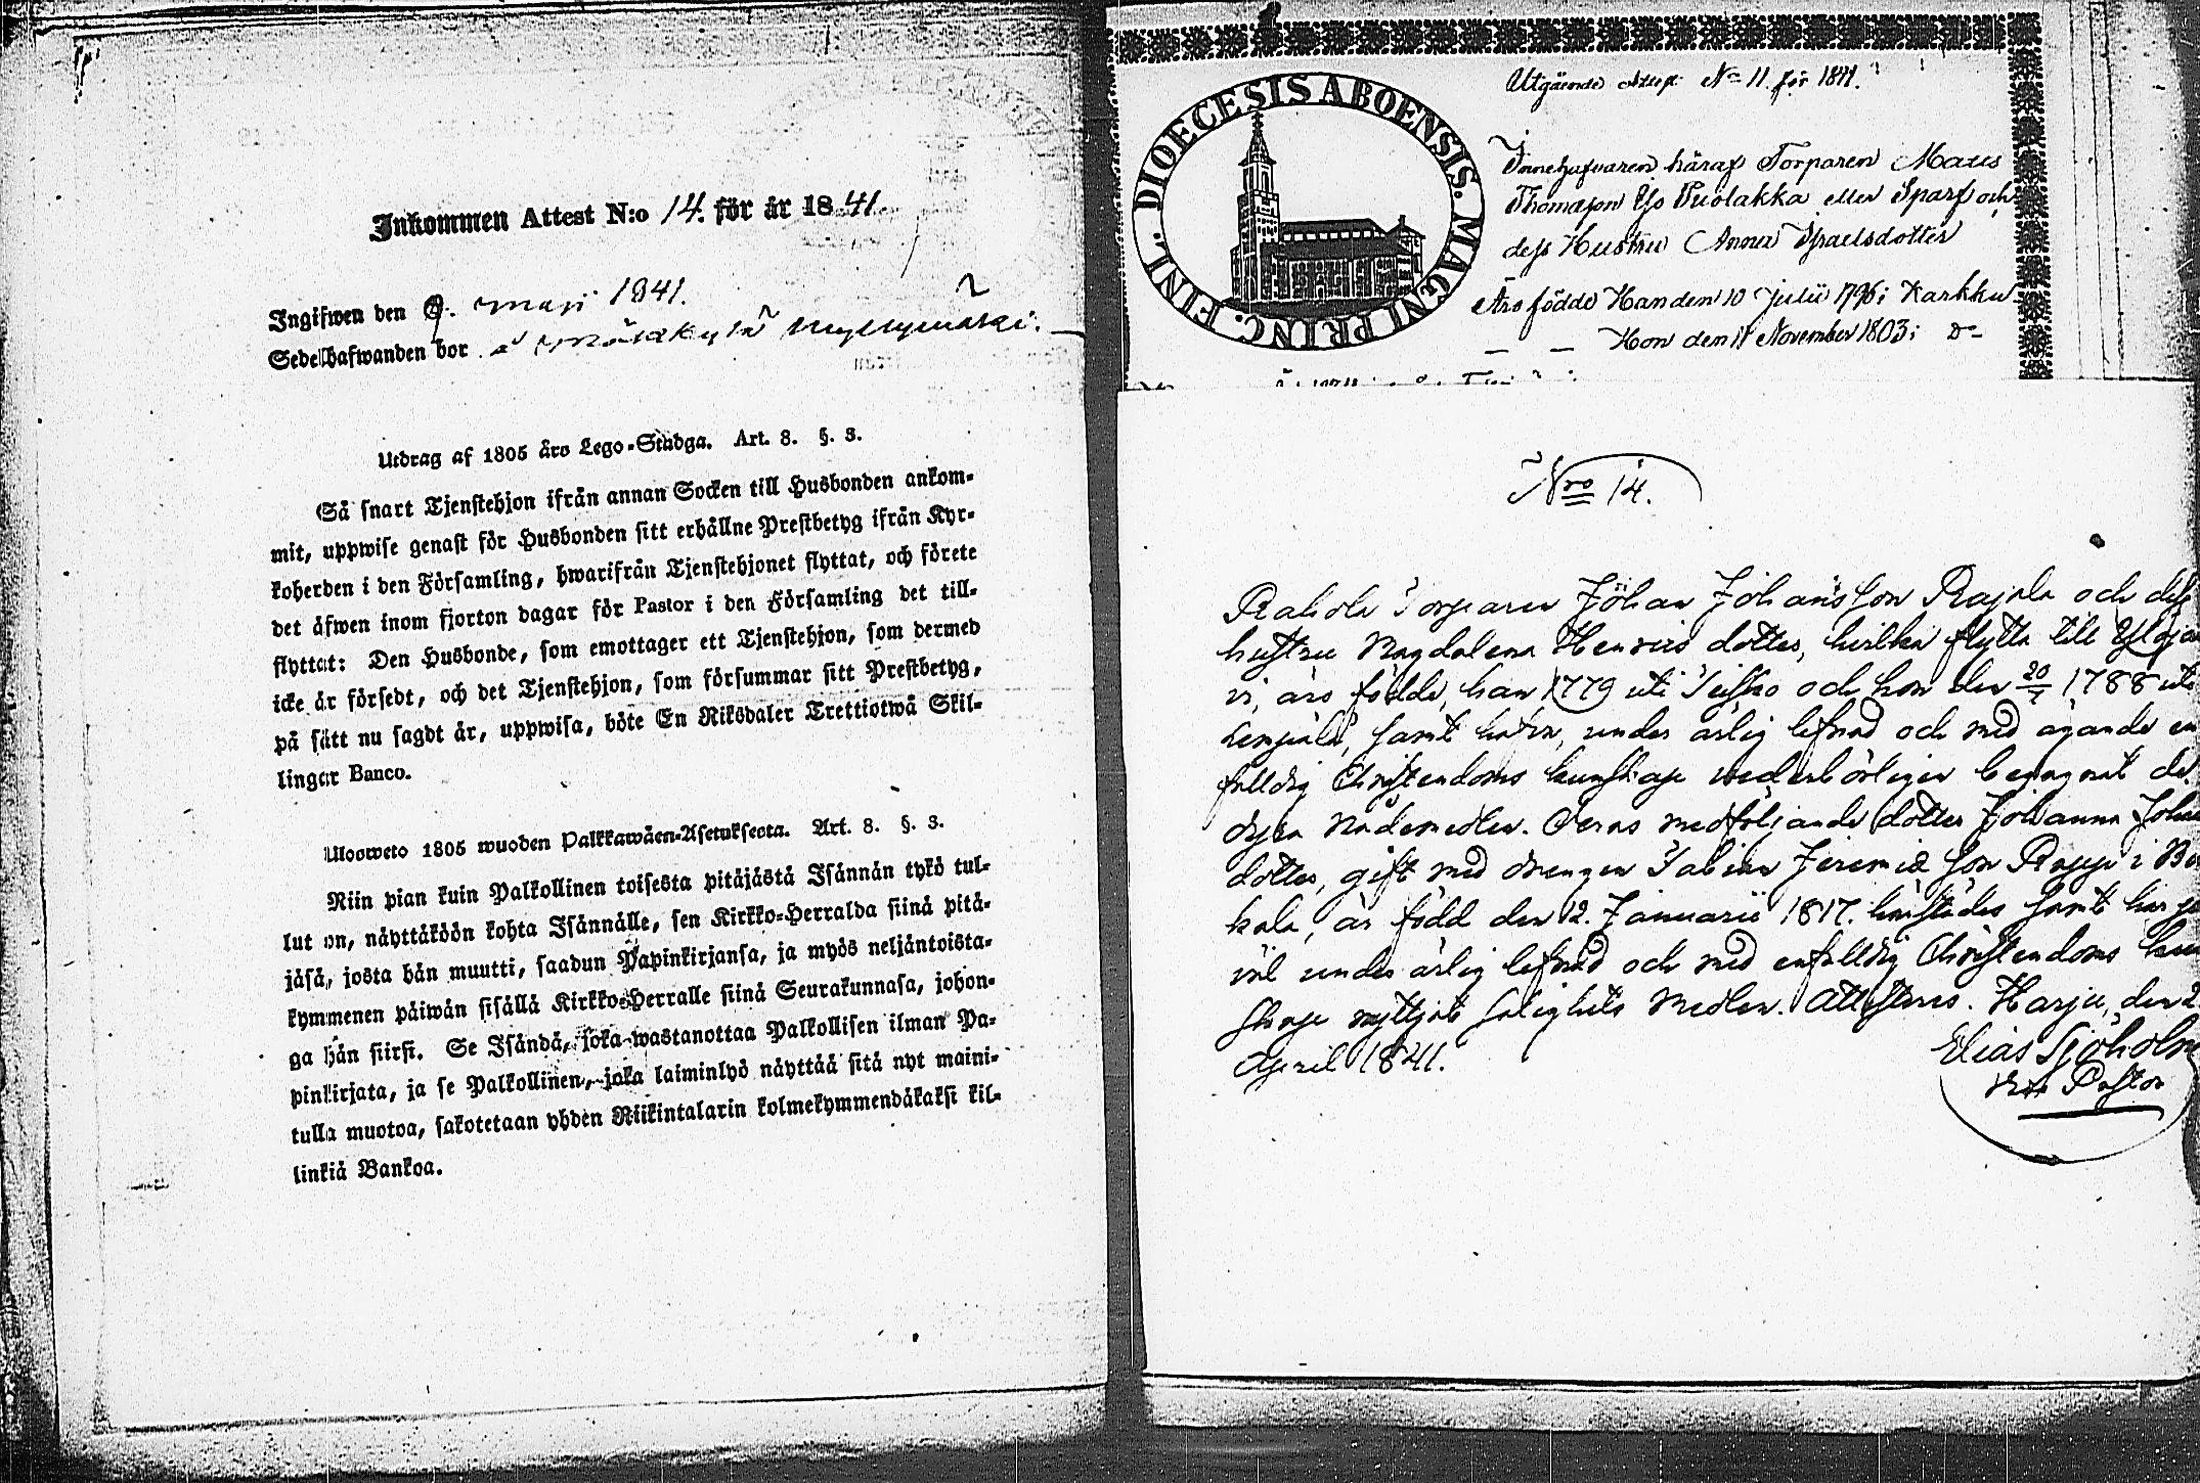 Inkommen Attest N:o 14. för år 1841.
Ingifwen den 9. maji 1841.
Sedelhafwanden bor
Utdrag af 1805 års Lego-Stadga. Art. 8. §. 3.
Så snart Tjenstehjon ifrån annan Socken till Husbonden ankom-
mit, uppwise genast för Husbonden sitt erhållne Prestbetyg ifrån Kyr-
koherden i den Församling, hwarifrån Tjenstehjonet flyttat, och förete
det äfwen inom fjorton dagar för Pastor i den Församling det till-
flyttat: Den Husbonde, som emottager ett Tjenstehjon, som dermed
icke är försedt, och det Tjenstehjon, som försummar sitt Prestbetyg,
på sätt nu sagdt är, uppwisa, böte En Riksdaler Trettiotwå Skil-
lingar Banco.
Ulosweto 1805 wuoden Palkkawäen-Asetuksesta. Art. 8. §. 3.
Niin pian kuin Palkollinen toisesta pitäjästä Isännän tykö tul-
lut on, näyttäköön kohta Isännälle, sen Kirkko-Herralda siinä pitä-
jäsä, josta hän muutti, saadun Papinkirjansa, ja myös neljäntoista-
kymmenen päiwän sisällä Kirkko-Herralle siinä Seurakunnasa, johon-
ga hän siirsi. Se Isändä, joka wastanottaa Palkollisen ilman Pa-
pinkirjata, ja se Palkollinen, joka laiminlyö näyttää sitä nyt maini-
tulla muotoa, sakotetaan yhden Riikintalarin kolmekymmendäkaksi kil-
linkiä Bankoa.
DIOECESIS ABOENSIS. MAGNI PRINC. FINL.
Utgående Attest No 11. för 1841.
Innehafvaren häraf Torparen Matts
Thomasson Puolakka eller Sparf och
dess Hustru Anna Israelsdotter
Äro födde Han den 10 Julii 1796 i Karkku
Hon den 11 November 1803 i Do
Nro 14.
Torparen Johan Johansson Rajala och dess
hustru Magdalena Henricsdotter, hvilka flytta till
vi, äro födde, han 1779 uti och hon den 1788 uti
samt hafva, under ärlig lefnad och med ägande en
falldig Christendoms kunskap vederbörligen begagnat de
dyra Nådemedlen. Deras medföljande dotter Johanna Johans
dotter, gift med drengen Jeremiæ son i
kala, är född den 12. Januarii 1817. härstädes samt har
väl under ärlig lefnad och med enfalldig Christendoms kun
skap nyttjat salighets Medlen. Attesteras. Harju, den 2
April 1841.
Elias Sjöholm
Pastor